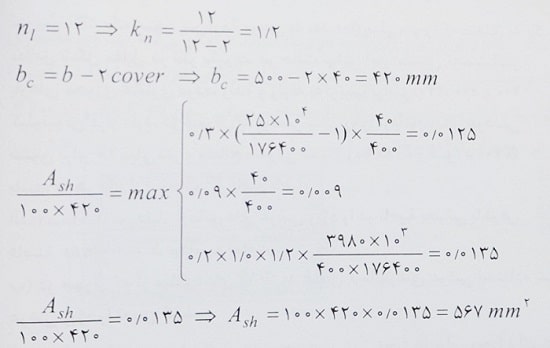 n_l = ۱۲ ⇒ k_n = ۱۲ / (۱۲ − ۲) = ۱/۲
b_c = b − ۲ cover ⇒ b_c = ۵۰۰ − ۲ × ۴۰ = ۴۲۰ mm
۰/۳ × (۲۵ × ۱۰^۴ / ۱۷۶۴۰۰ − ۱) × ۴۰ / ۴۰۰ = ۰/۰۱۲۵
A_sh / (۱۰۰ × ۴۲۰) = max { ۰/۰۹ × ۴۰ / ۴۰۰ = ۰/۰۰۹
۰/۲ × ۱/۰ × ۱/۲ × ۳۹۸۰ × ۱۰^۳ / (۴۰۰ × ۱۷۶۴۰۰) = ۰/۰۱۳۵
A_sh / (۱۰۰ × ۴۲۰) = ۰/۰۱۳۵ ⇒ A_sh = ۱۰۰ × ۴۲۰ × ۰/۰۱۳۵ = ۵۶۷ mm^۲